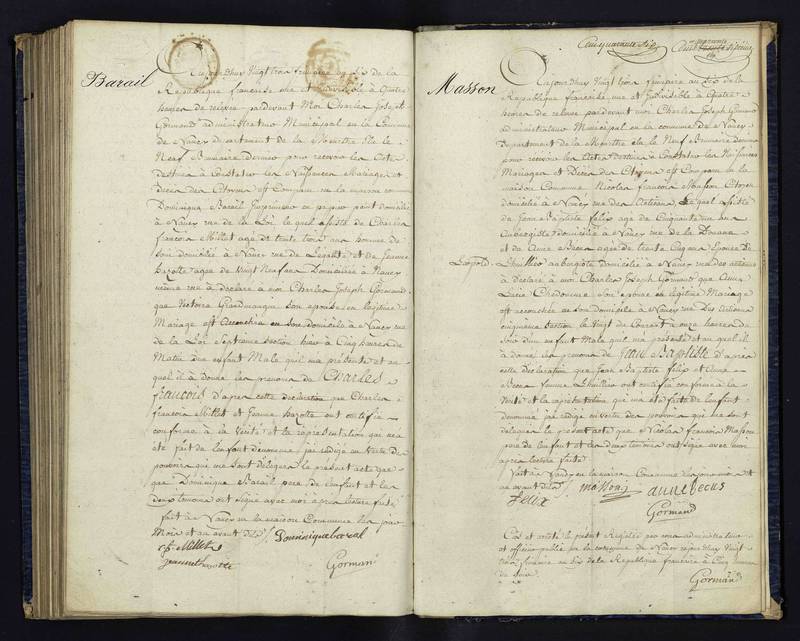 Barail
aujourd'huy Vingt trois frimaire an six de la
Republique francaise une et indivisible à Quatre
heures de relevée pardevant Moi Charles Joseph
Gormand administrateur Municipal en la Commune
de Nancy département de la Meurthe Elu le
Neuf Brumaire dernier pour recevoir les Actes
Destinés à Constater les Naissances Mariages et
Décès des Citoyens est Comparu en la maison commune
Dominique Barail Imprimeur en papier peint domicilié
à Nancy rue de la Loi lequel assisté de Charles
François Millot agé de trente trois ans homme de
Loi domicilié à Nancy rue de Légalité et de Jeanne
hazotte agée de Vingt Neuf ans Domiciliée à Nancy
même rue à déclaré à moi Charles Joseph Gormand
que Victoire son épouse en légitime
Mariage est accouchée en son domicile à Nancy rue
de la Loi Septieme Section hier à Cinq heures du
Matin d'un enfant Male qu'il m'a présenté et au
quel il à donné les prénoms de Charles
francois d'après cette déclaration que Charles
francois Millot et Jeanne hazotte ont certifié
conforme à la Vérité et la représentation qui m'a
été fait de l'enfant dénommé jai rédigé en Vertu des
pouvoirs qui me sont délégués le présent acte que
que Dominique Barail pere de l'enfant et les
deux temoins ont signé avec moi après lecture faite
fait à Nancy en la maison Commune les jour
Mois et an avant dits Dominique barail
cf Millot
jeanne hazotte Gorman
Cent quarante Six
Masson
aujourd'huy Vingt trois frimaire an six de la
Republique francaise une et indivisible à Quatre
heures de relevée pardevant moi Charles Joseph Gormand
administrateur Municipal en la commune de Nancy
Département de la Meurthe élu le Neuf Brumaire dernier
pour recevoir les Actes destinés à Constater les Naissances
Mariages et Décès des Citoyens est Comparu en la
maison Commune Nicolas francois Masson Citoyen
domicilié à Nancy rue des Artisans Lequel assisté
de Jean Baptiste felix agé de Cinquante un ans
Aubergiste domicilié à Nancy rue de la Douane
et de Anne Becus agée de trente Cinq ans Epouse de
Léopold Lhuillier aubergiste domiciliée à Nancy rue des artisans
à déclaré à moi Charles Joseph Gormand que Anne
Lucie son épouse en légitime Mariage
est accouchée en son domicile à Nancy rue des Artisans
cinquieme Section le Vingt du Courant à onze heures du
Soir d'un enfant Male qu'il m'a présenté et au quel il
à donné les prenoms de Jean Baptiste d'après
cette déclaration que Jean Baptiste felix et Anne
Becus femme Lhuillier ont certifié conforme à la
Vérité et la représentation qui m'a été faite de l'enfant
denommé jai rédigé en vertu des pouvoirs qui me sont
délégués le présent acte que Nicolas francois Masson
pere de l'enfant et les deux temoins ont signé avec moi
apres lecture faite
fait à Nancy en la maison Commune les jour mois et
an avant dits masson anne becus
felix
Gormand
Clos et arrêté le présent Registre par nous administrateur
et officier public de la commune de Nancy cejourd'huy Vingt
trois frimaire an six de la Republique francaise à Cinq heures
du Soir
Gormand